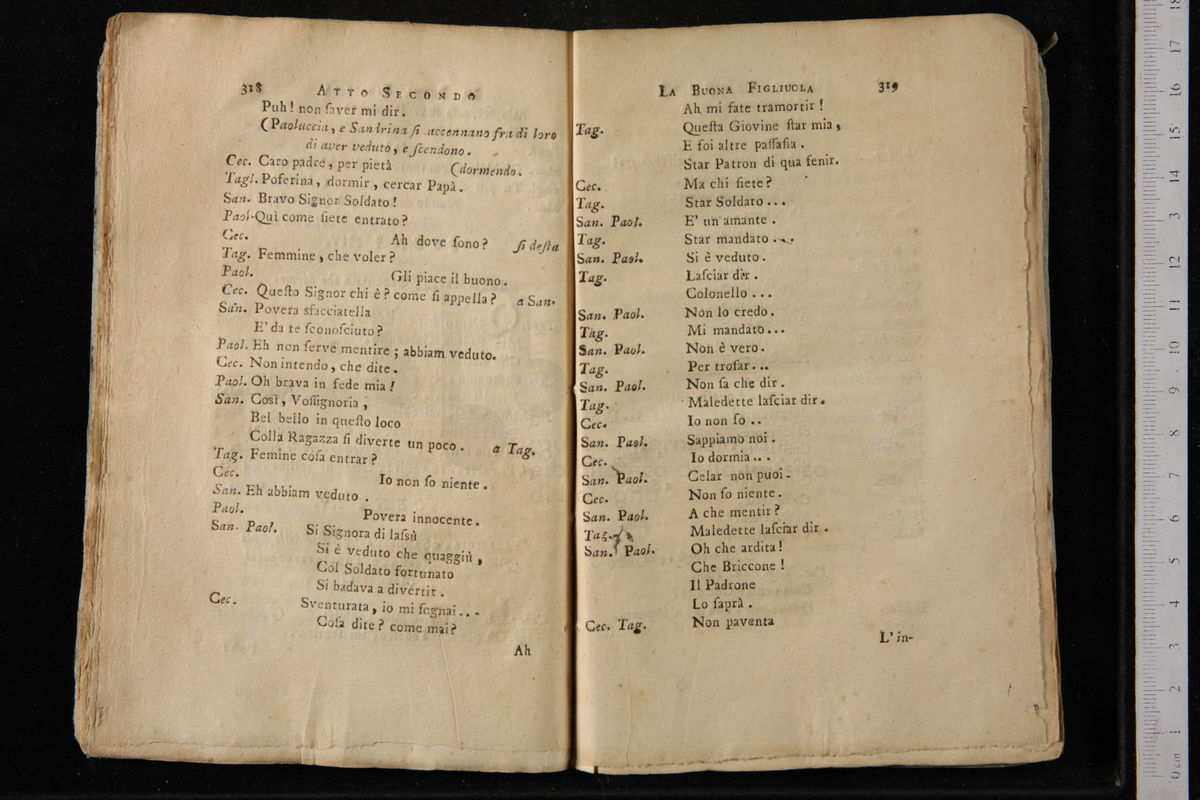 318 ATTO SECONDO
Puh! non ſaver mi dir.
(Paoluccia, e Sandrina ſi accennano fra di loro
di aver veduto, e ſcendono.
Cec. Caro padre, per pietà (dormendo.
Tagl. Poferina, dormir, cercar Papà.
San. Bravo Signor Soldato!
Paol-Quì come ſiete entrato?
Cec. Ah dove ſono? ſi deſta
Tag. Femmine, che voler?
Paol. Gli piace il buono.
Cec. Queſto Signor chi è? come ſi appella? a San.
San. Povera sfacciatella
E' da te ſconoſciuto?
Paol. Eh non ſerve mentire; abbiam veduto.
Cec. Non intendo, che dite.
Paol. Oh brava in fede mia!
San. Così, Voſſignoria,
Bel bello in queſto loco
Colla Ragazza ſi diverte un poco. a Tag.
Tag. Femine coſa entrar?
Cec. Io non ſo niente.
San. Eh abbiam veduto.
Paol. Povera innocente.
San. Paol. Si Signora di laſsù
Si è veduto che quaggiù,
Col Soldato fortunato
Si badava a divertir.
Cec. Sventurata, io mi ſegnai...
Coſa dite? come mai?
Ah
LA BUONA FIGLIUOLA 319
Ah mi fate tramortir!
Tag. Queſta Giovine ſtar mia,
E foi altre paſſaſia.
Star Patron di qua fenir.
Cec. Ma chi ſiete?
Tag. Star Soldato...
San. Paol. E' un amante.
Tag. Star mandato...
San. Paol. Si è veduto.
Tag. Laſciar dir.
Colonello...
San. Paol. Non lo credo.
Tag. Mi mandato...
San. Paol. Non è vero.
Tag. Per trofar...
San. Paol. Non ſa che dir.
Tag. Maledette laſciar dir.
Cec. Io non ſo..
San. Paol. Sappiamo noi.
Cec. Io dormia...
San. Paol. Celar non puoi.
Cec. Non ſo niente.
San. Paol. A che mentir?
Tag. Maledette laſciar dir.
San. Paol. Oh che ardita!
Che Briccone!
Il Padrone
Lo ſaprà.
Cec. Tag. Non paventa
L' in-
0 cm 1 2 3 4 5 6 7 8 9 10 11 12 13 14 15 16 17 18